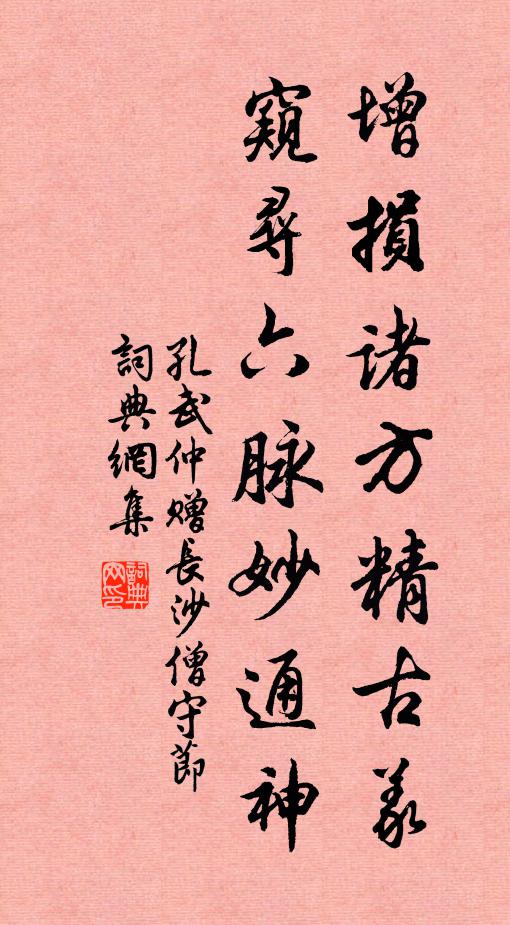 增損諸方精古義
窺尋六脉妙通神
孔武仲赠長沙僧守節
詞典網集
詞典网印